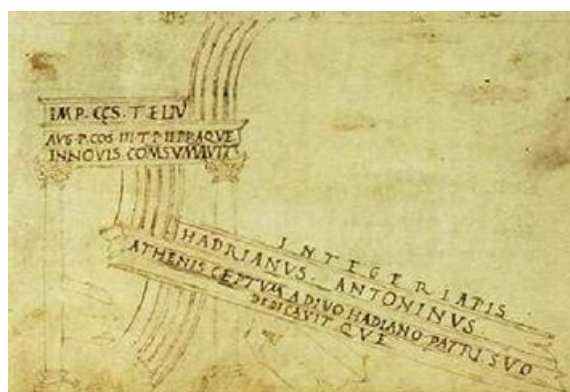 IMP. CÇS. T ELIV
AVG. P. COS III. T P II PRAQVE
IN NOVIS COMSVMAVIT
INTEGERIATIS
HADRIANVS. ANTONINVS
ATHENIS CEPTVM A DIVO HADIANO PATTRI SVO
DEDICAVIT QVE